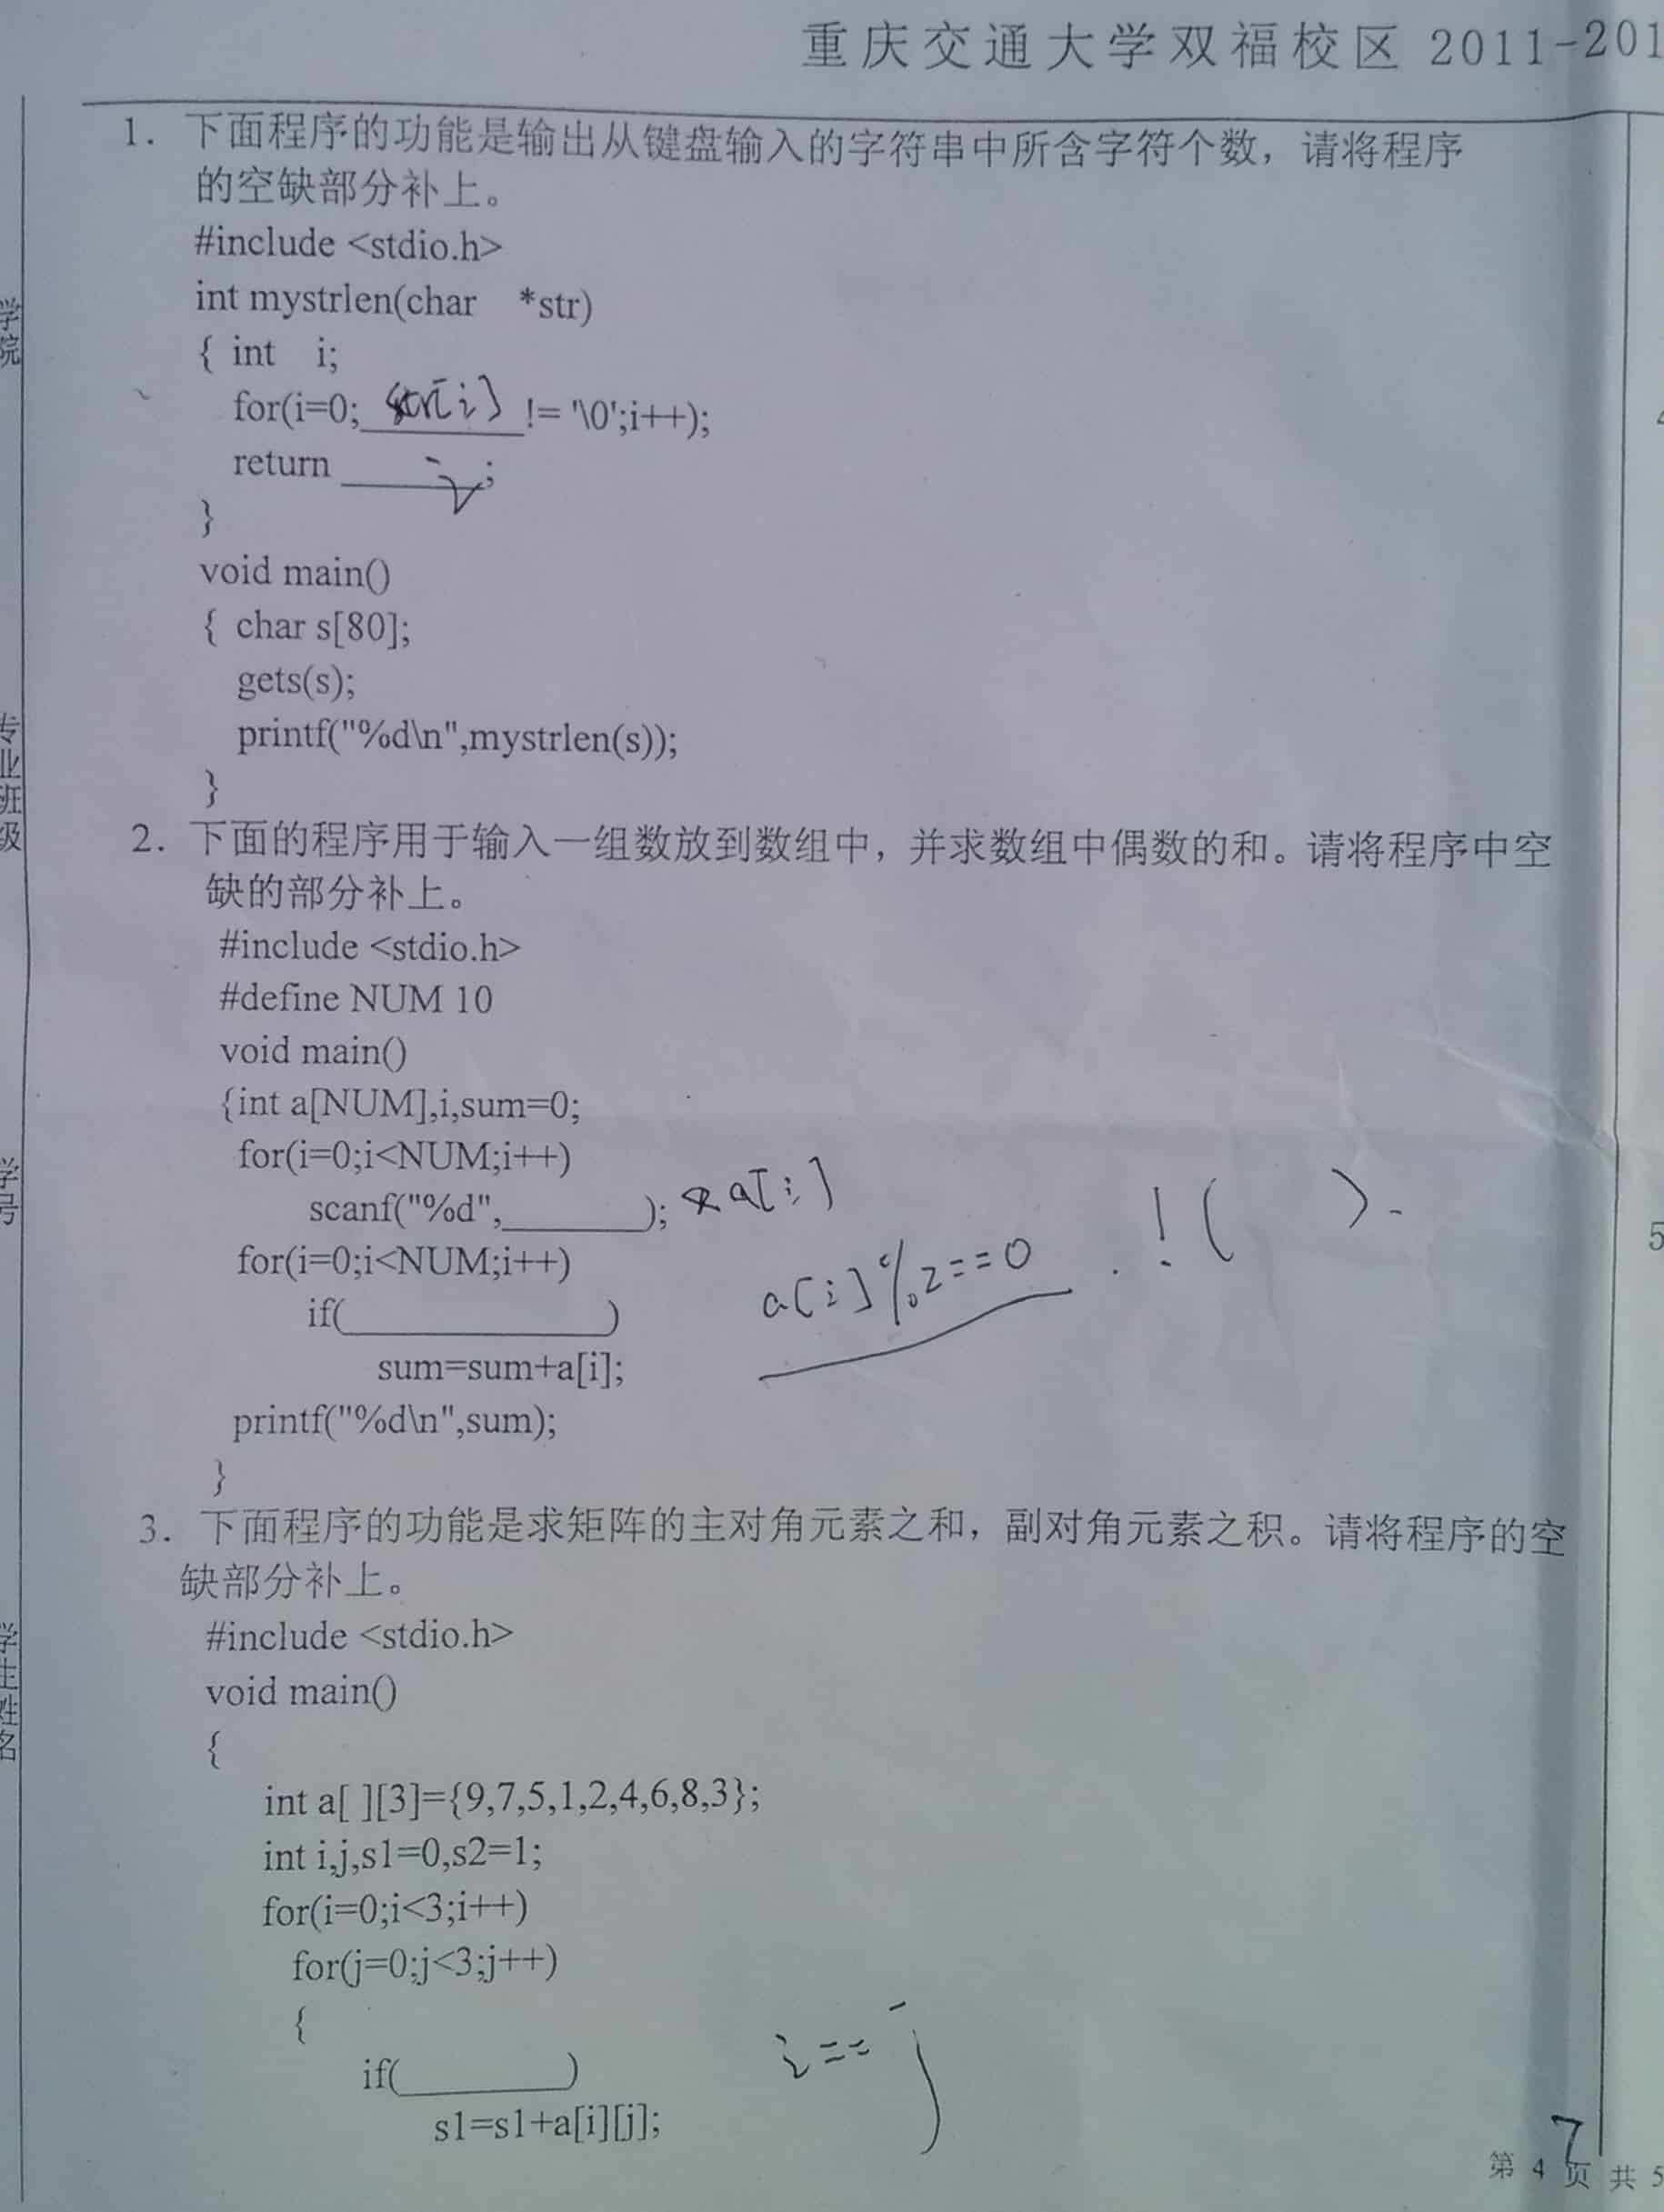 重庆交通大学双福校区 2011-201
1. 下面程序的功能是输出从键盘输入的字符串中所含字符个数，请将程序
的空缺部分补上。
#include <stdio.h>
int mystrlen(char *str)
{ int i;
for(i=0; str[i] != '\0';i++);
return i;
}
void main()
{ char s[80];
gets(s);
printf("%d\n",mystrlen(s));
}
2. 下面的程序用于输入一组数放到数组中，并求数组中偶数的和。请将程序中空
缺的部分补上。
#include <stdio.h>
#define NUM 10
void main()
{int a[NUM],i,sum=0;
for(i=0;i<NUM;i++)
scanf("%d",______); &a[i]
for(i=0;i<NUM;i++)
if(____________) a[i]%2==0 . !( ).
sum=sum+a[i];
printf("%d\n",sum);
}
3. 下面程序的功能是求矩阵的主对角元素之和，副对角元素之积。请将程序的空
缺部分补上。
#include <stdio.h>
void main()
{
int a[ ][3]={9,7,5,1,2,4,6,8,3};
int i,j,s1=0,s2=1;
for(i=0;i<3;i++)
for(j=0;j<3;j++)
{
if(________) i==j
s1=s1+a[i][j];
第 4 页 共 5
7
学院
专业班级
学号
学生姓名
5